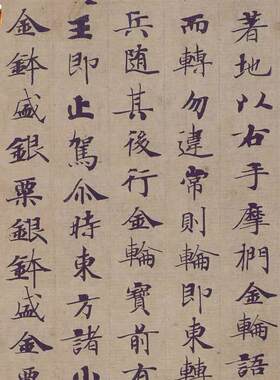 著地以右手摩捫金輪語
而轉勿違常則輪即東轉
兵隨其後行金輪寶前有
王即止駕尒時東方諸小
金鉢盛銀粟銀鉢盛金粟